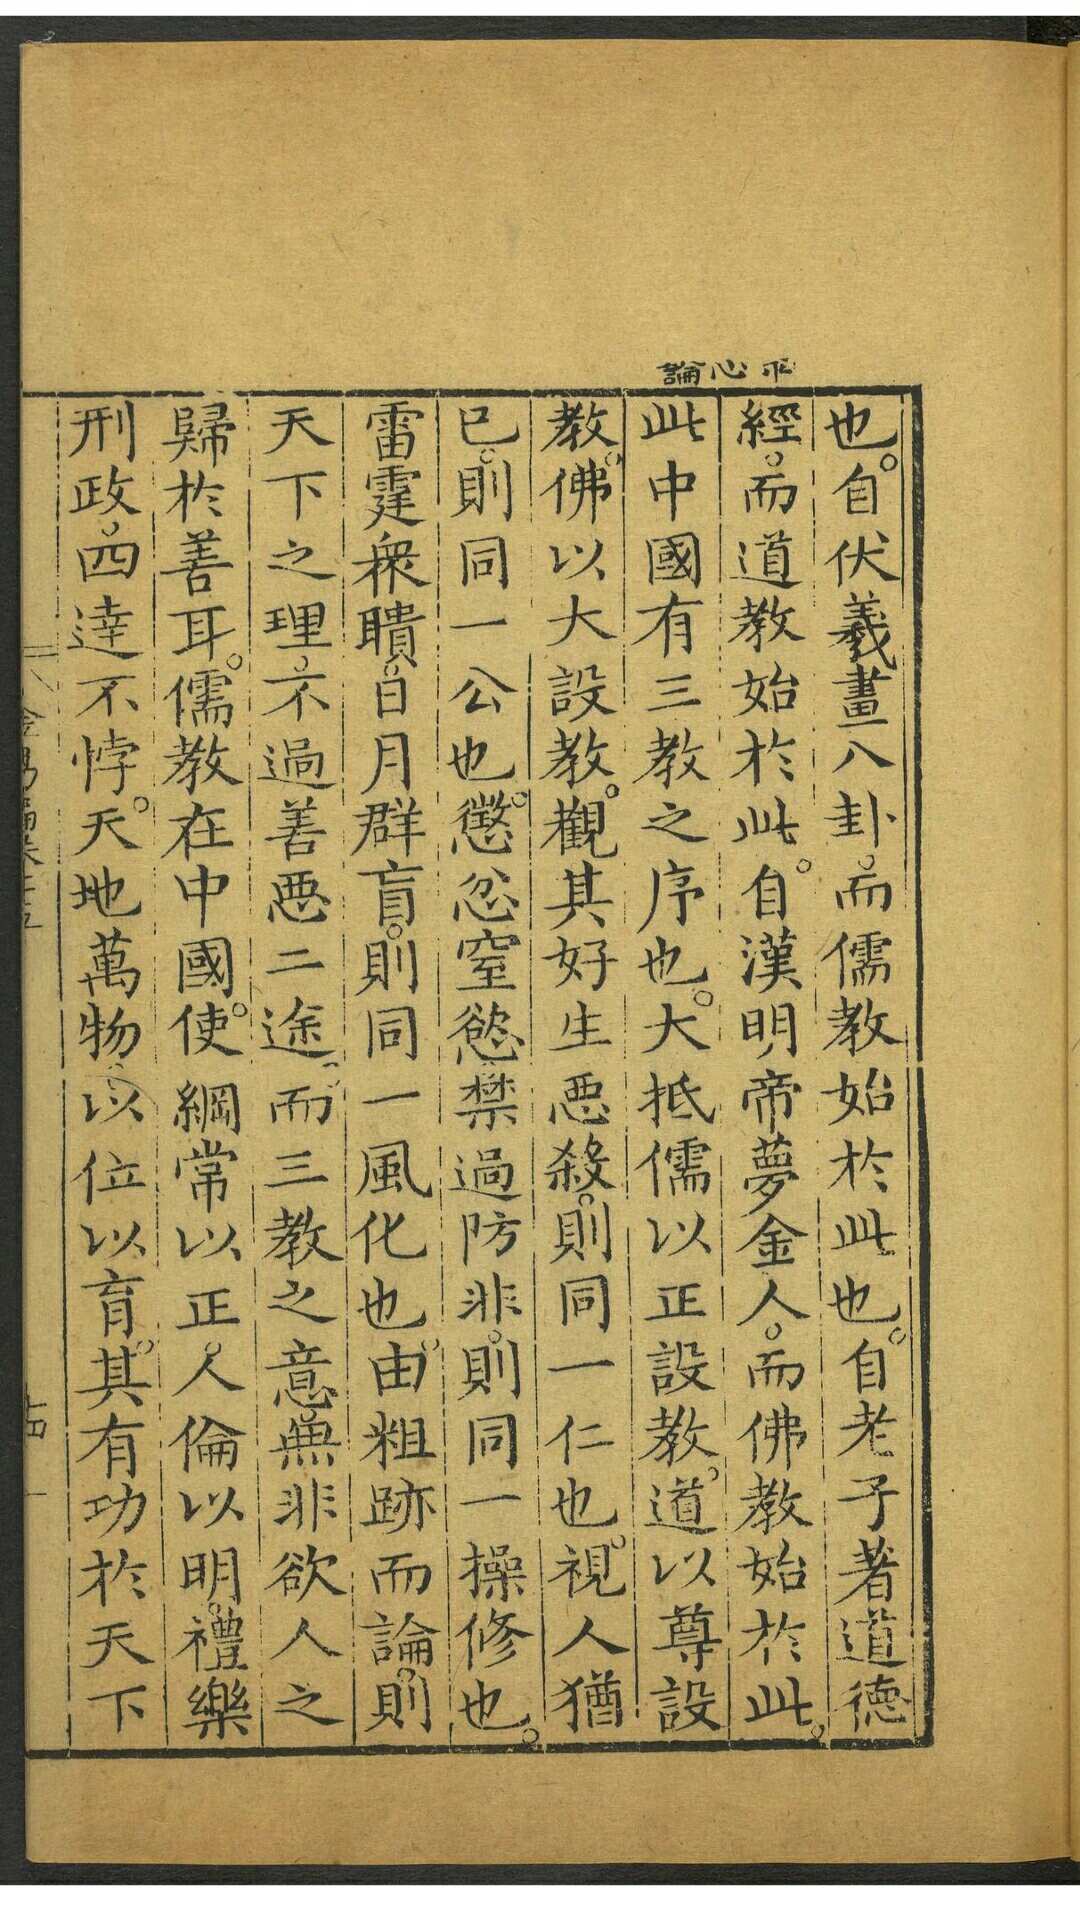 平心論
也。自伏羲畫八卦。而儒教始於此也。自老子著道德
經。而道教始於此。自漢明帝夢金人。而佛教始於此。
此中國有三教之序也。大抵儒以正設教。道以尊設
教。佛以大設教。觀其好生惡殺。則同一仁也。視人猶
已。則同一公也。懲忿窒慾。禁過防非。則同一操修也。
雷霆衆聵。日月群盲。則同一風化也。由粗跡而論。則
天下之理。不過善惡二途。而三教之意。無非欲人之
歸於善耳。儒教在中國。使綱常以正。人倫以明。禮樂
刑政。四達不悖。天地萬物。以位以育。其有功於天下